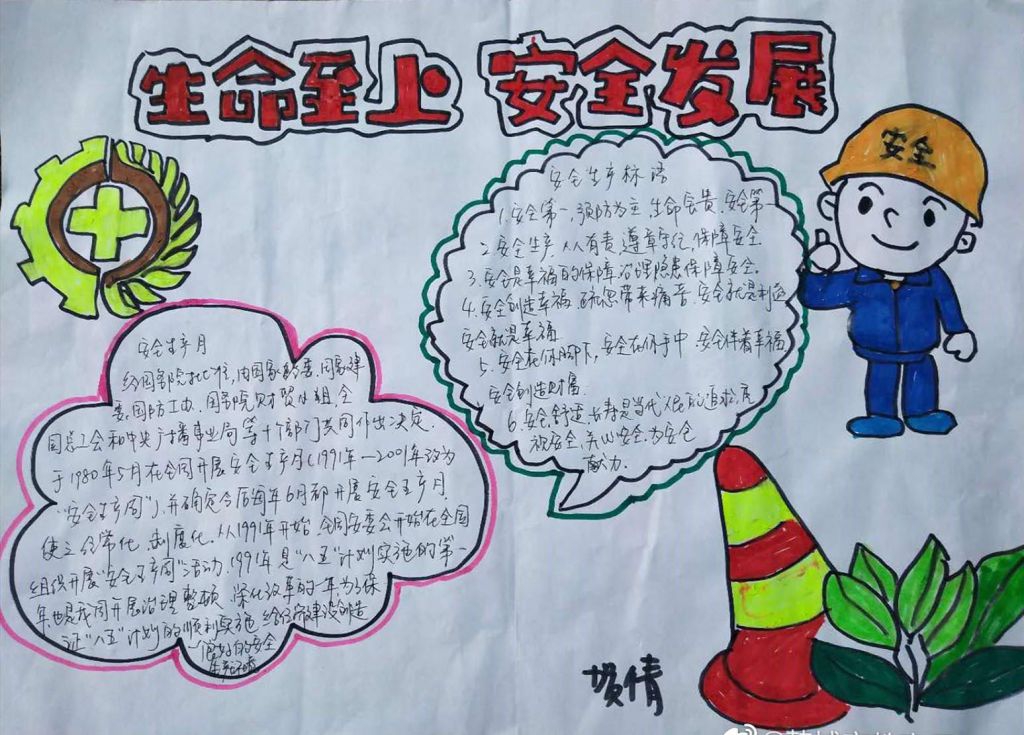 生命至上 安全发展
安全
安全生产标语
1.安全第一,预防为主,生命宝贵,安全第一
2.安全生产,人人有责,遵章守纪,保障安全.
3.安全是幸福的保障,治理隐患保障安全。
4.安全创造幸福,疏忽带来痛苦,安全就是利益
安全就是幸福
5.安全在你脚下,安全在你手中,安全伴着幸福
安全创造财富
6.安全,舒适,长寿是当代人民的追求,
安全,为安全
献力.
安全生产月
经国务院批准,由国家经委、国家建
委、国防工办、国务院财贸小组,全
国总工会和中央广播事业局等十个部门共同作出决定.
于1980年5月在全国开展安全生产月(1991年—2001年改为
"安全生产周"),并确定今后每年6月都开展安全生产月
使之经常化、制度化.从1991年开始,全国安委会开始在全国
组织开展"安全生产周"活动.1991年是"八五"计划实施的第一
年也是我国开展治理整顿、深化改革的一年,为了保
证"八五"计划的顺利实施,给经济建设创造
一个良好的安全
生产环境